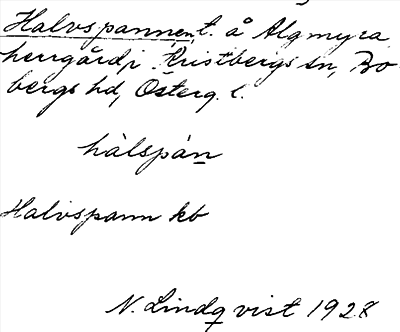 Halvspannen, t. å Älgmyra
herrgård, i Kristbergs sn, Bo-
bergs hd, Österg. l.
hàlspán
Halvspann kb
N. Lindqvist 1928